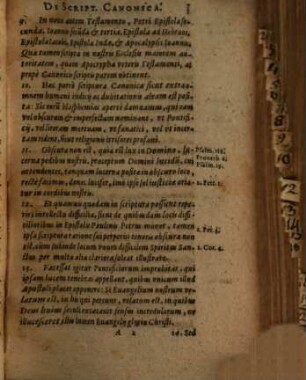 DE SCRIPT. CANONICA. 3
9. In novo autem Testamento, Petri Epistola secunda, Ioannis secũda & tertia, Epistola ad Hebræos, Epistola Iacobi, Epistola Iudæ, & Apocalypsis Ioannis, Quæ tamen scripta in nostris Ecclesiis maiorem autoritatem, quam Apocrypha veteris Testamenti, at
propè Canonicis scriptis parem obtinent.
10. Hæc porrò scriptura Canonica sicut extra
omnem humani iudicij ac dubitationis aleam est posita:
vel obscuram & imperfectam nominant, ut Pontificij,
vel literam mortuam, ut fanatici, vel ut incertam
rident, sicut religionis irrisores profani.
11. Obscura non est, quia est lux in Domino,
lucerna pedibus nostris, præceptum Domini lucidũ,
attendentes, tanquam lucerna posita in obscuro loco,
rectè facimus, donec lucifer, imò ipse sol iustitiæ oriatur
in cordibus nostris.
12. Et quamvis quædam in scriptura possent
intellectu difficilia, sicut de quibusdam locis difficilioribus
in Epistolis Paulinis Petrus monet, tamen
ipsa scriptura ratione sui perpetuò tenenda obscura non
est, cùm subinde locum unum difficilem Spiritus Sanctus
per multa alia clariora soleat illustrare.
13. Facessat igitur Pontificiorum improbitas, qui
ipsam lucem tenebras appellant, quibus vicissim illud
Apostoli placet opponere: Si Euangelium nostrum velatum
est, in his qui pereunt, velatum est, in quibus
Deus huius seculi excæcavit sensus incredulorum, ne
illucesceret illis lumen Euangelij gloriæ Christi.
A 2 14. Sed
Psalm.
Proverb. 6.
Psalm. 19.
2. Petr. 1.
2. Pet. 3.
2. Cor. 4.